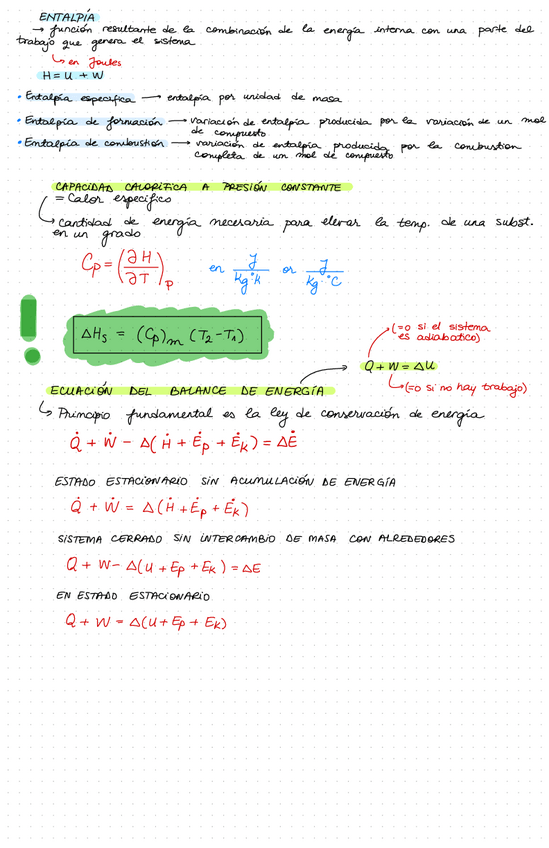 ENTALPÍA
→ función resultante de la combinación de la energía interna con una parte del
trabajo que genera el sistema
↳ en Joules
H = U + W
• Entalpía especifica → entalpía por unidad de masa
• Entalpía de formación → variación de entalpía producida por la variación de un mol
de compuesto
• Emtalpía de combustión → variación de entalpía producida por la combustion
completa de un mol de compuesto
CAPACIDAD CALORÍFICA A PRESIÓN CONSTANTE
= Calor especifico
↳ Cantidad de energía necesaria para elevar la temp. de una subst.
en un grado
Cp = (∂H/∂T)p en J/kg·°K or J/kg·°C
! ΔHs = (Cp)m (T2 - T1)
(=0 si el sistema
es adiabatico)
Q + W = ΔU
↳ (=0 si no hay trabajo)
ECUACIÓN DEL BALANCE DE ENERGÍA
↳ Principio fundamental es la ley de conservación de energía
Q̇ + Ẇ - Δ(Ḣ + Ėp + Ėk) = ΔĖ
ESTADO ESTACIONARIO SIN ACUMULACIÓN DE ENERGÍA
Q̇ + Ẇ = Δ(Ḣ + Ėp + Ėk)
SISTEMA CERRADO SIN INTERCAMBIO DE MASA CON ALREDEDORES
Q + W - Δ(U + Ep + Ek) = ΔE
EN ESTADO ESTACIONARIO
Q + W = Δ(U + Ep + Ek)